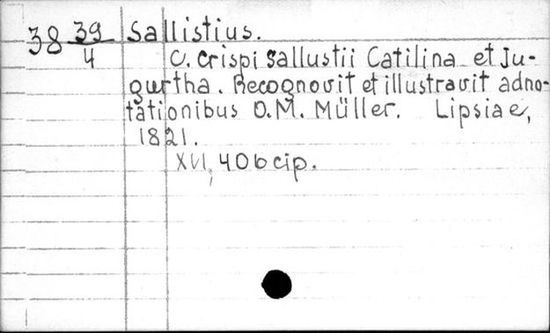 38 39/4 Sallistius.
C. Crispi Sallustii Catilina et Ju-
gurtha. Recognovit et illustravit adno-
tationibus O.M. Müller. Lipsiae,
1821.
XVI, 406 cip.